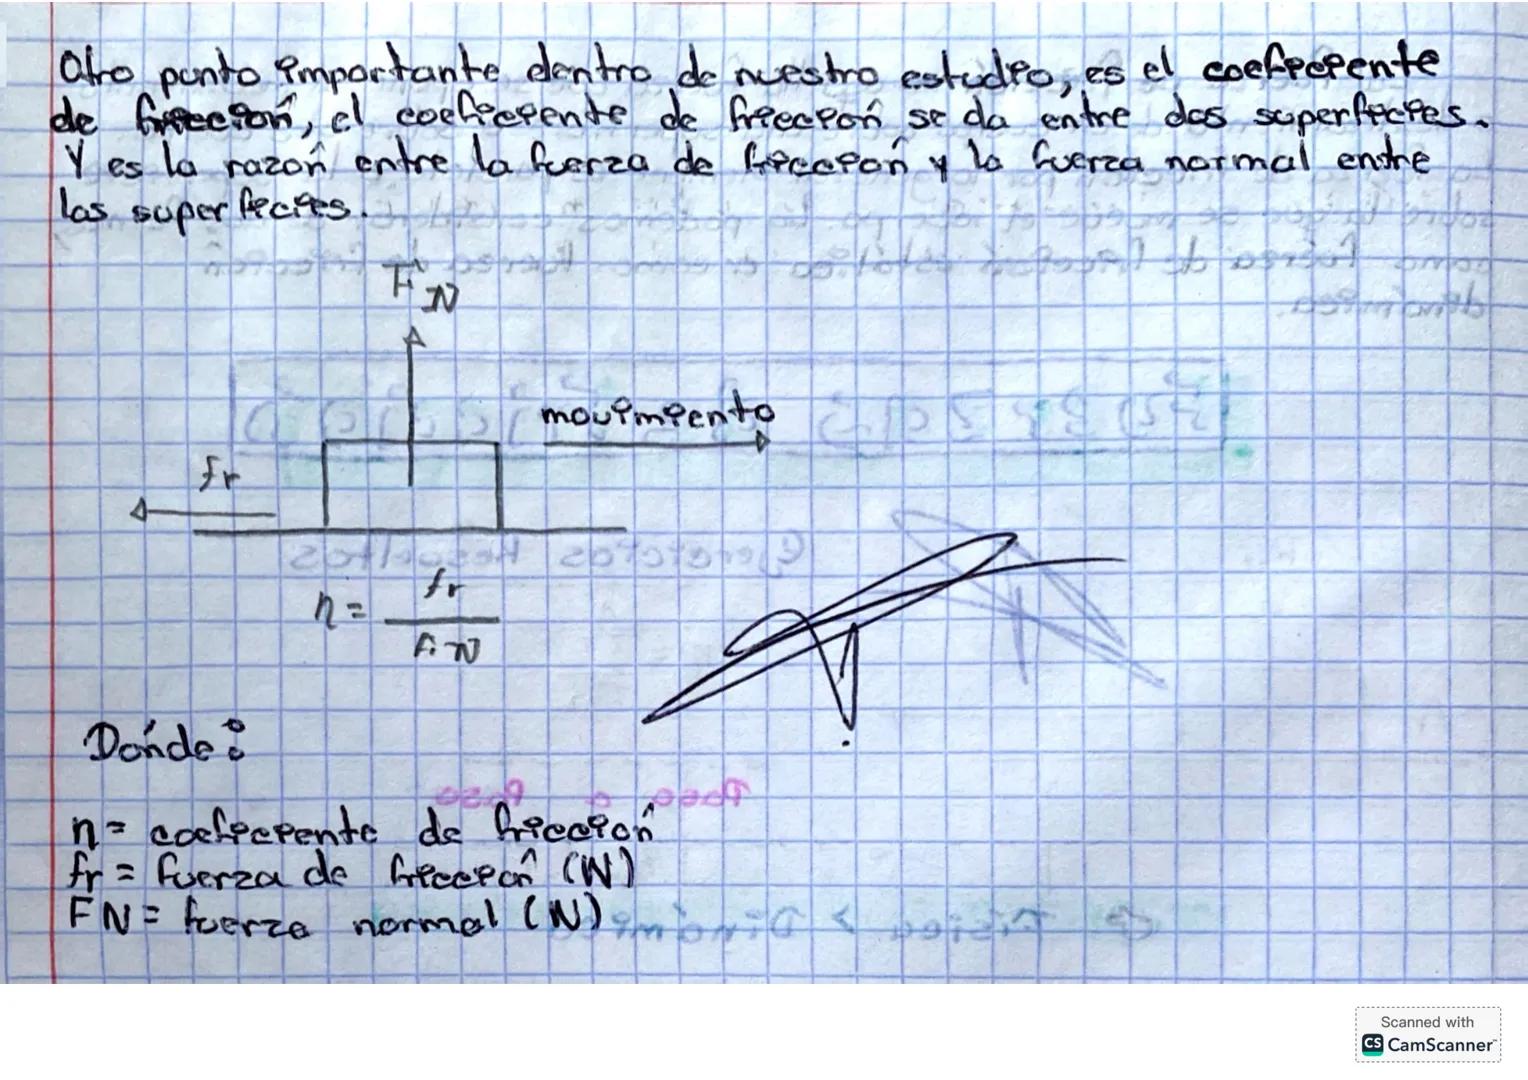 Otro punto importante dentro de nuestro estudio, es el coeficiente
de fricción, el coeficiente de fricción se da entre dos superficies.
Y es la razón entre la fuerza de fricción y la fuerza normal entre
las superficies.
FN
movimiento
fr
η = fr
FN
Dónde:
η = coeficiente de fricción
fr = fuerza de fricción (N)
FN = fuerza normal (N)
Scanned with
CS CamScanner